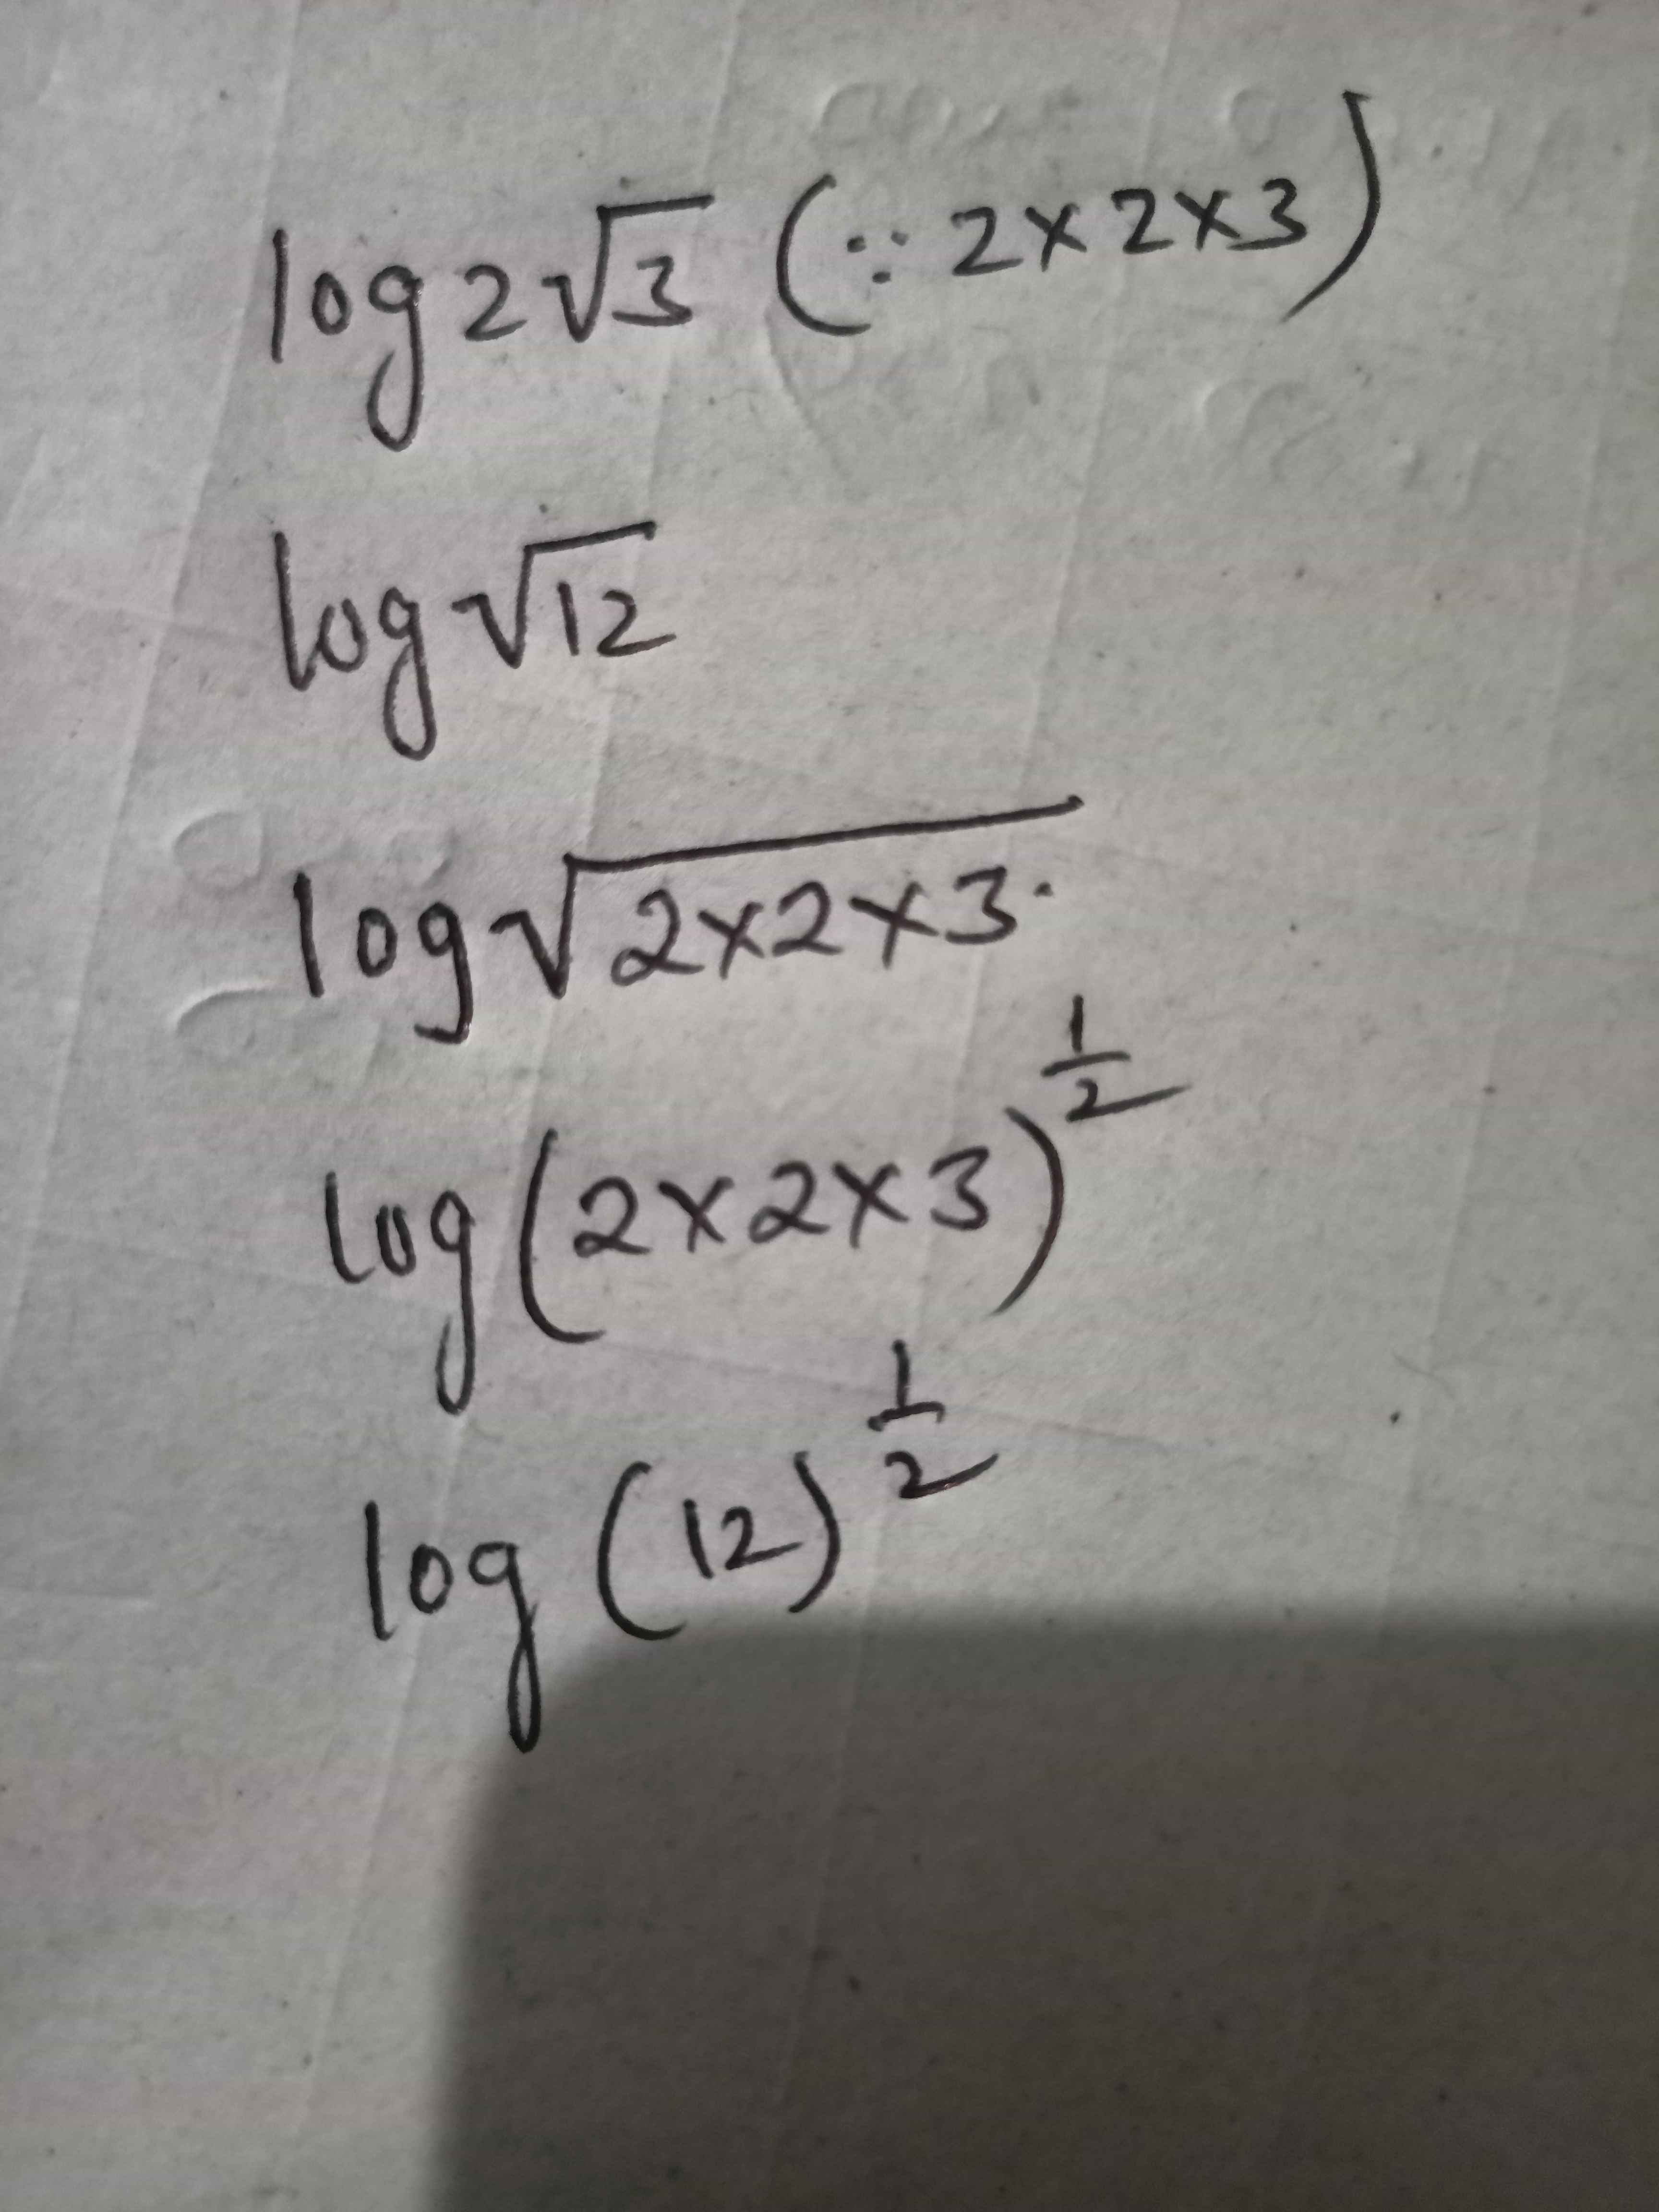 log 2√3 (∵ 2×2×3)
log √12
log √2×2×3
log (2×2×3)^1/2
log (12)^1/2